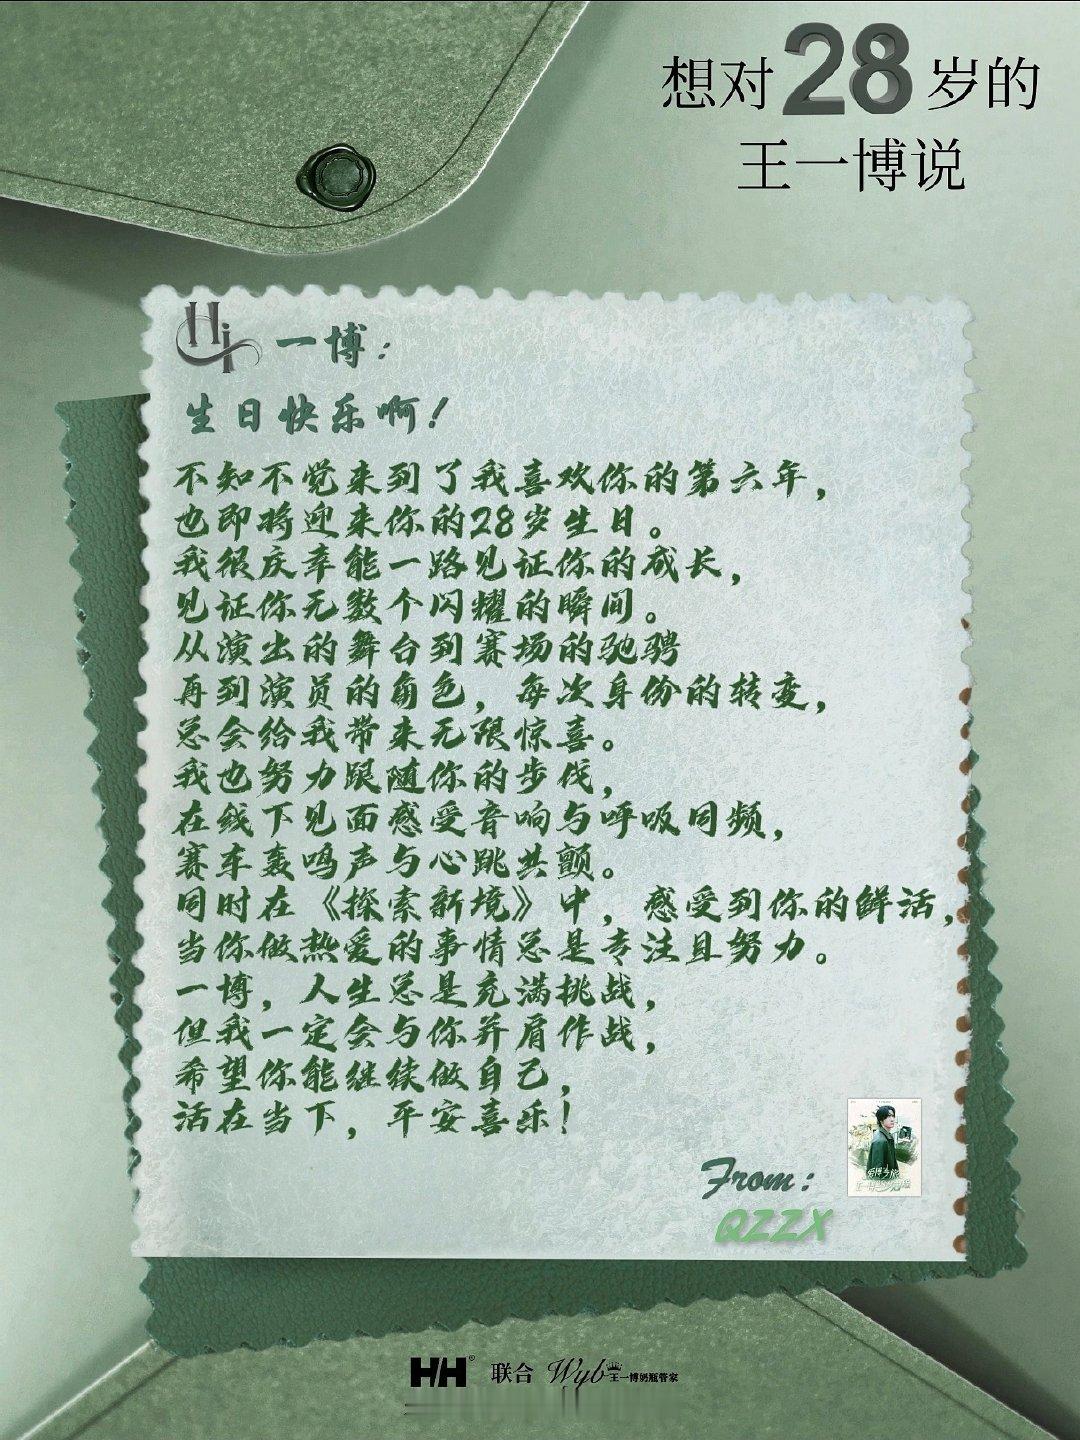 想对28岁的
王一博说
Hi 一博：
生日快乐啊！
不知不觉来到了我喜欢你的第六年，
也即将迎来你的28岁生日。
我很庆幸能一路见证你的成长，
见证你无数个闪耀的瞬间。
从演出的舞台到赛场的驰骋
再到演员的角色，每次身份的转变，
总会给我带来无限惊喜。
我也努力跟随你的步伐，
在线下见面感受音响与呼吸同频，
赛车轰鸣声与心跳共颤。
同时在《探索新境》中，感受到你的鲜活，
当你做热爱的事情总是专注且努力。
一博，人生总是充满挑战，
但我一定会与你并肩作战，
希望你能继续做自己，
活在当下，平安喜乐！
From：
QZZX
HH® 联合 Wyb王一博奶瓶管家